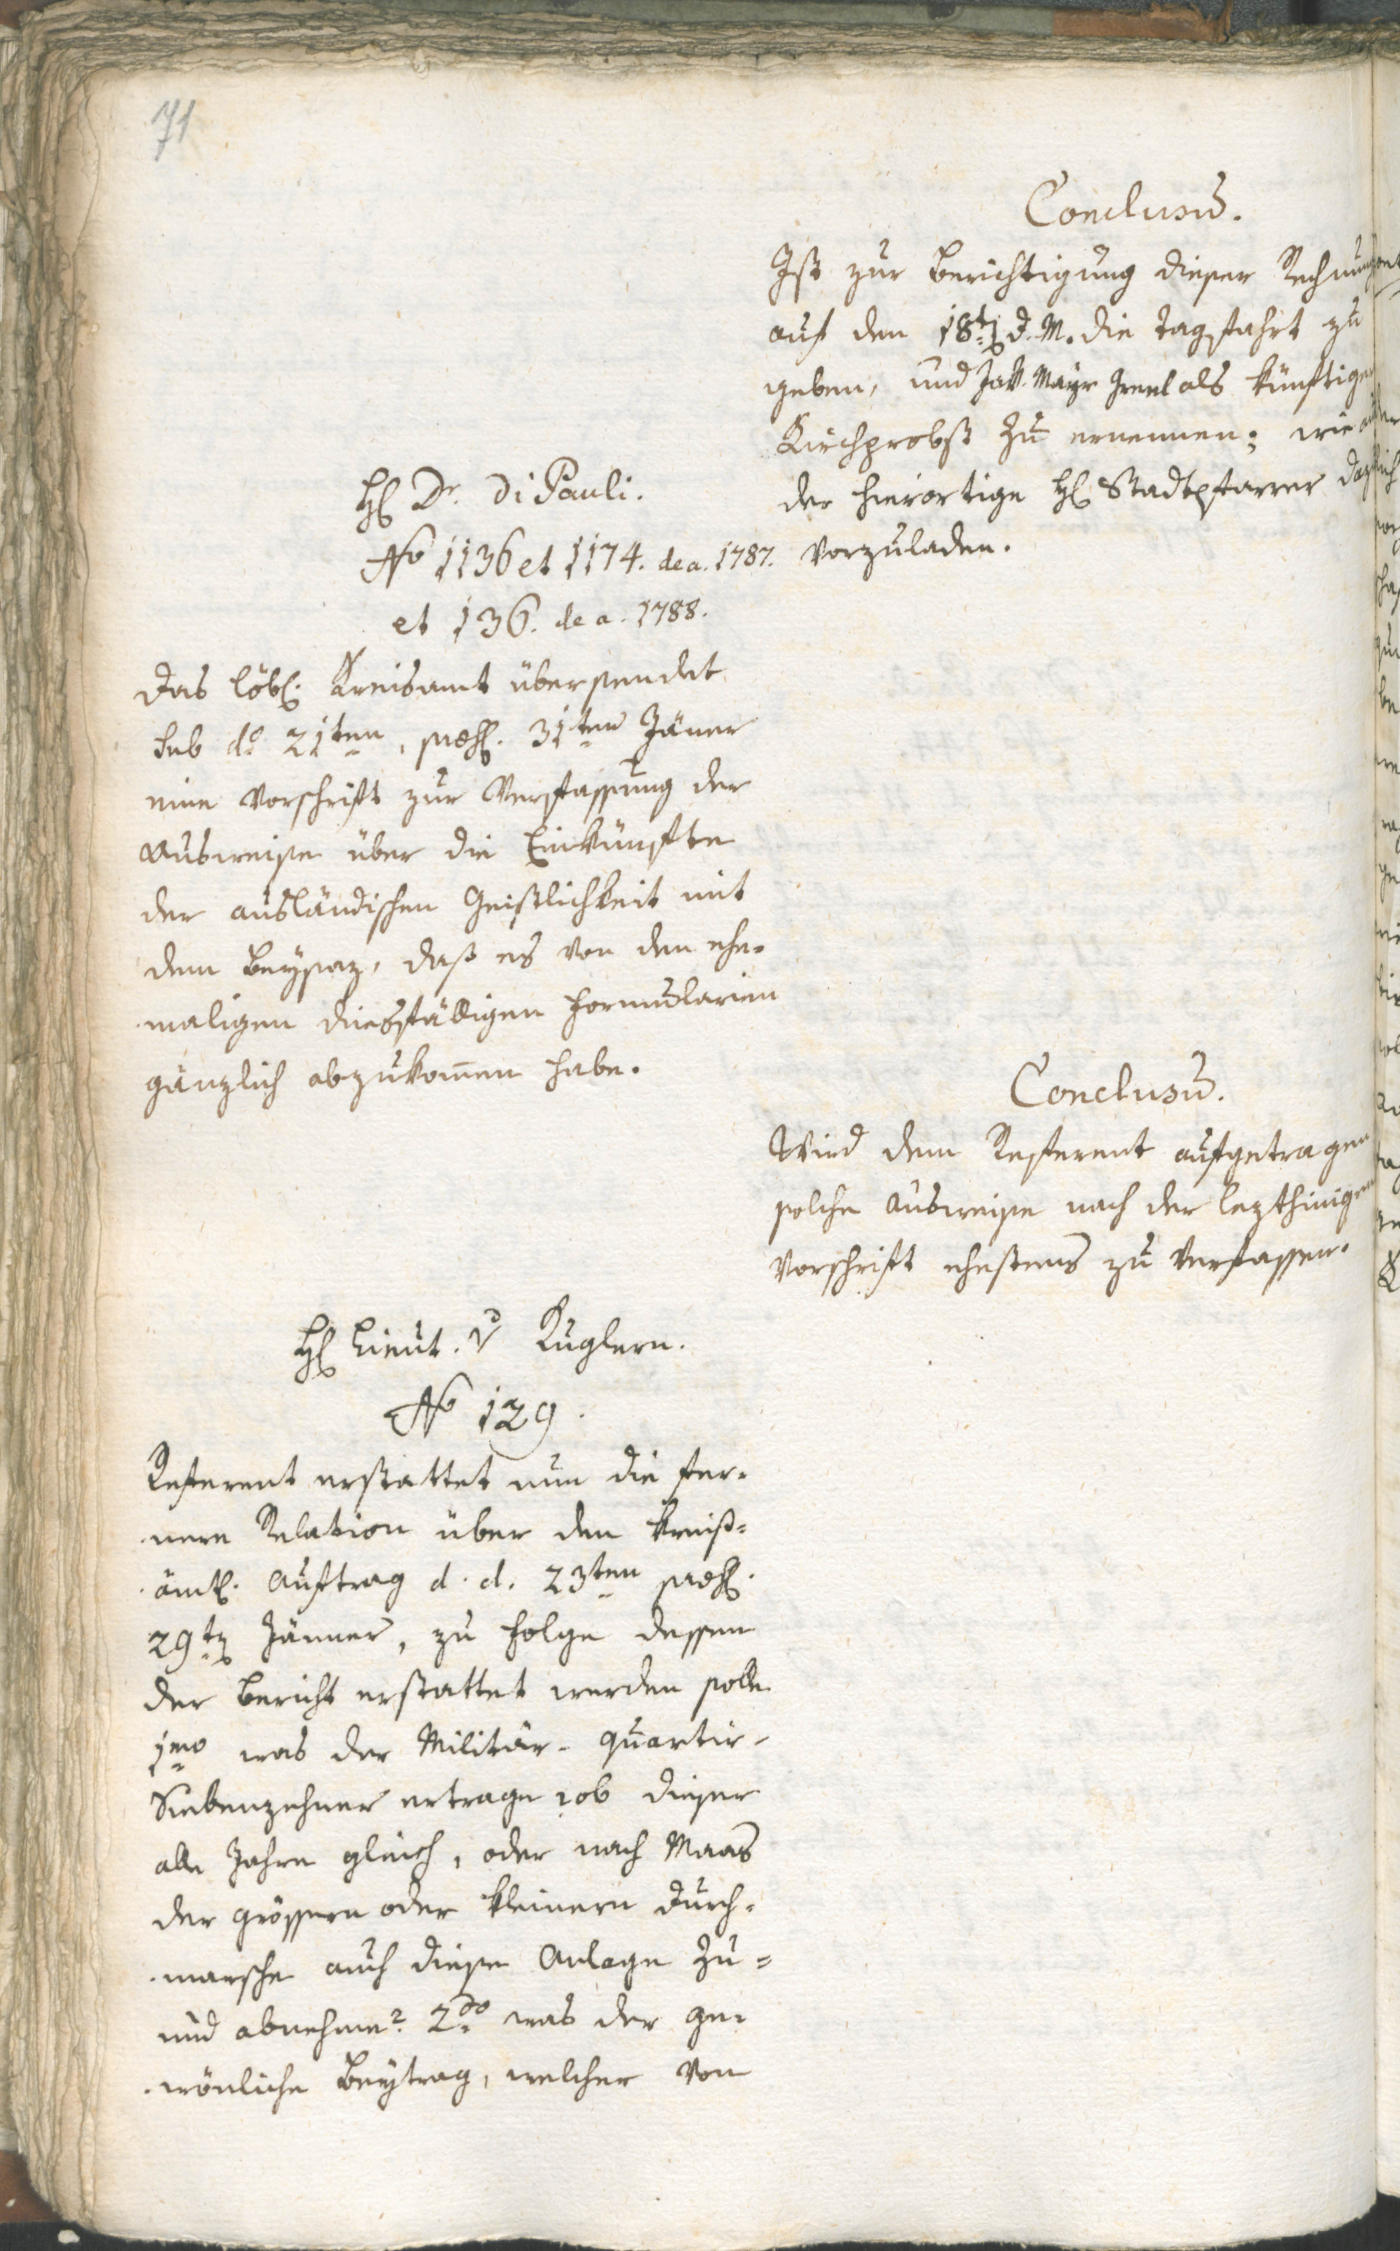 71
Conclusũ.
Ist zur Berichtigung dieser Rechnung
auf den 18t. d. M. die Tagfahrt zu
geben, und Jak. Mayr als künftigen
Kirchprobst zu ernennen; wie
der hierortige H. Stadtpfarrer
vorzuladen.
H. Dr. Di Pauli.
No 1136 et 1174. de a. 1787.
et 136. de a. 1788.
Das löbl. Kreisamt übersendet
sub do 21ten, præs. 31ten Jäner
eine Vorschrift zur Verfassung der
Ausweise über die Einkünfte
der ausländischen Geistlichkeit mit
dem Beysaz, daß es von den ehe-
maligen diesfälligen Formularien
gänzlich abzukom̄en habe.
Conclusũ.
Wird dem Referent aufgetragen
solche Ausweise nach der lezthinigen
Vorschrift ehestens zu verfassen.
H. Lieut. v Kuglern.
No 129.
Referent erstattet nun die fer-
nere Relation über den kreis-
ämtl. Auftrag d. d. 23ten præs.
29t. Jänner, zu Folge dessen
der Bericht erstattet werden solle
1mo was der Militär- Quartir-
Siebenzehner ertrage, ob dieser
alle Jahre gleich, oder nach Maas
der grössern oder kleinern Durch-
marsche auch diese Anlage zu-
und abnehme? 2do was der ge-
wönliche Beytrag, welcher von